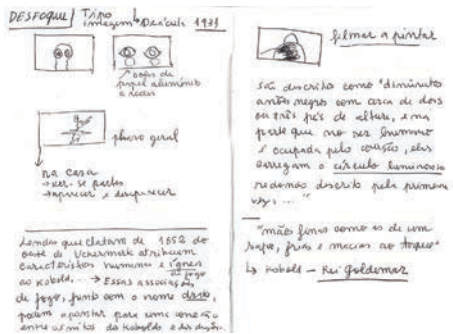 DESFOQUE / Tripo
imagem Drácula 1931
→ olhos de
papel alumínio
a rodar
plano geral
na casa
→ ver-se partes
→ aparecer e desaparecer
Lendas que datam de 1852 do
oeste de Uckermark atribuem
características humanas e ígneas
ao Kobold, ... → Essas associações
de fogo, junto com o nome drak,
podem apontar para uma conexão
entre os mitos do kobolds e dos
filmar a pintar
são descrito como "diminutos
anões negros com cerca de dois
ou três pés de altura, e na
parte que no ser humano
é ocupada pelo coração, eles
carregam o círculo luminoso
redondo descrito pela primeira
vez, ..."
"mãos finas como as de um
sapo, frias e macias ao toque"
↳ Kobold – Rei Goldemar